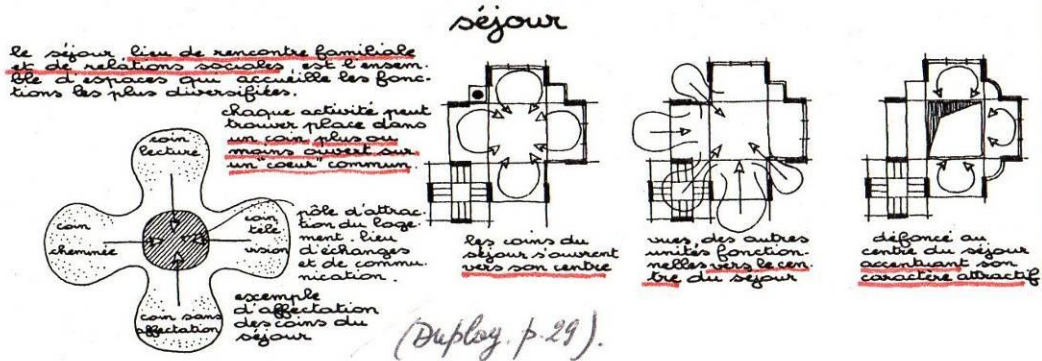 séjour
le séjour lieu de rencontre familiale
et de relations sociales est l'ensem-
ble d'espaces qui accueille les fonc-
tions les plus diversifiées.
chaque activité peut
trouver place dans
un coin plus ou
moins ouvert sur
un "coeur" commun
coin
lecture
coin
cheminée
coin
télé
vision
coin sans
affectation
pôle d'attrac
tion du loge-
ment. lieu
d'échanges
et de commu-
nication.
exemple
d'affectation
des coins du
séjour
les coins du
séjour s'ouvrent
vers son centre
vues, des autres
unités fonction-
nelles vers le cen-
tre du séjour
défoncé au
centre du séjour
accentuant son
caractère attractif
(Duplay. p. 29).